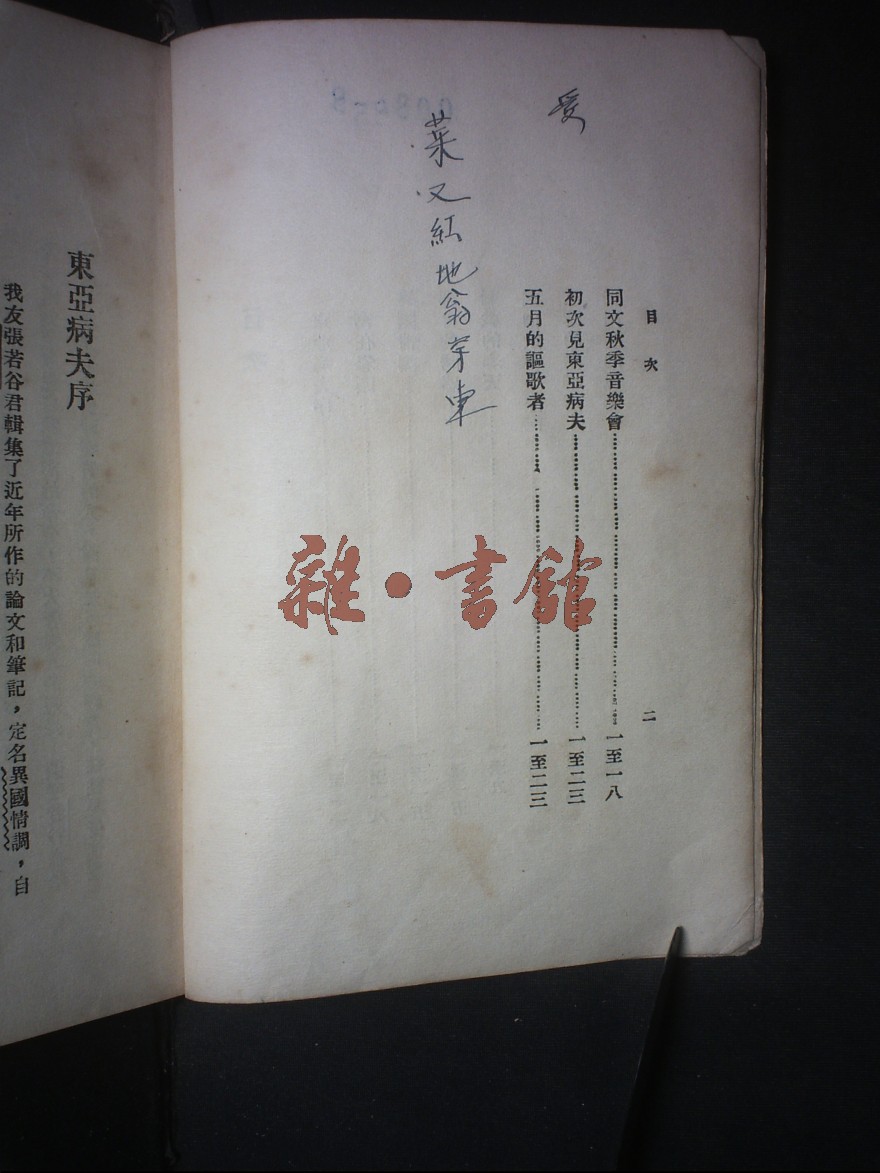 目次
二
同文秋季音樂會……一至一八
初次見東亞病夫……一至二三
五月的謳歌者……一至二三
受
菜又紅地翁芽東
雜·書館
東亞病夫序
我友張若谷君輯集了近年所作的論文和筆記，定名異國情調，自